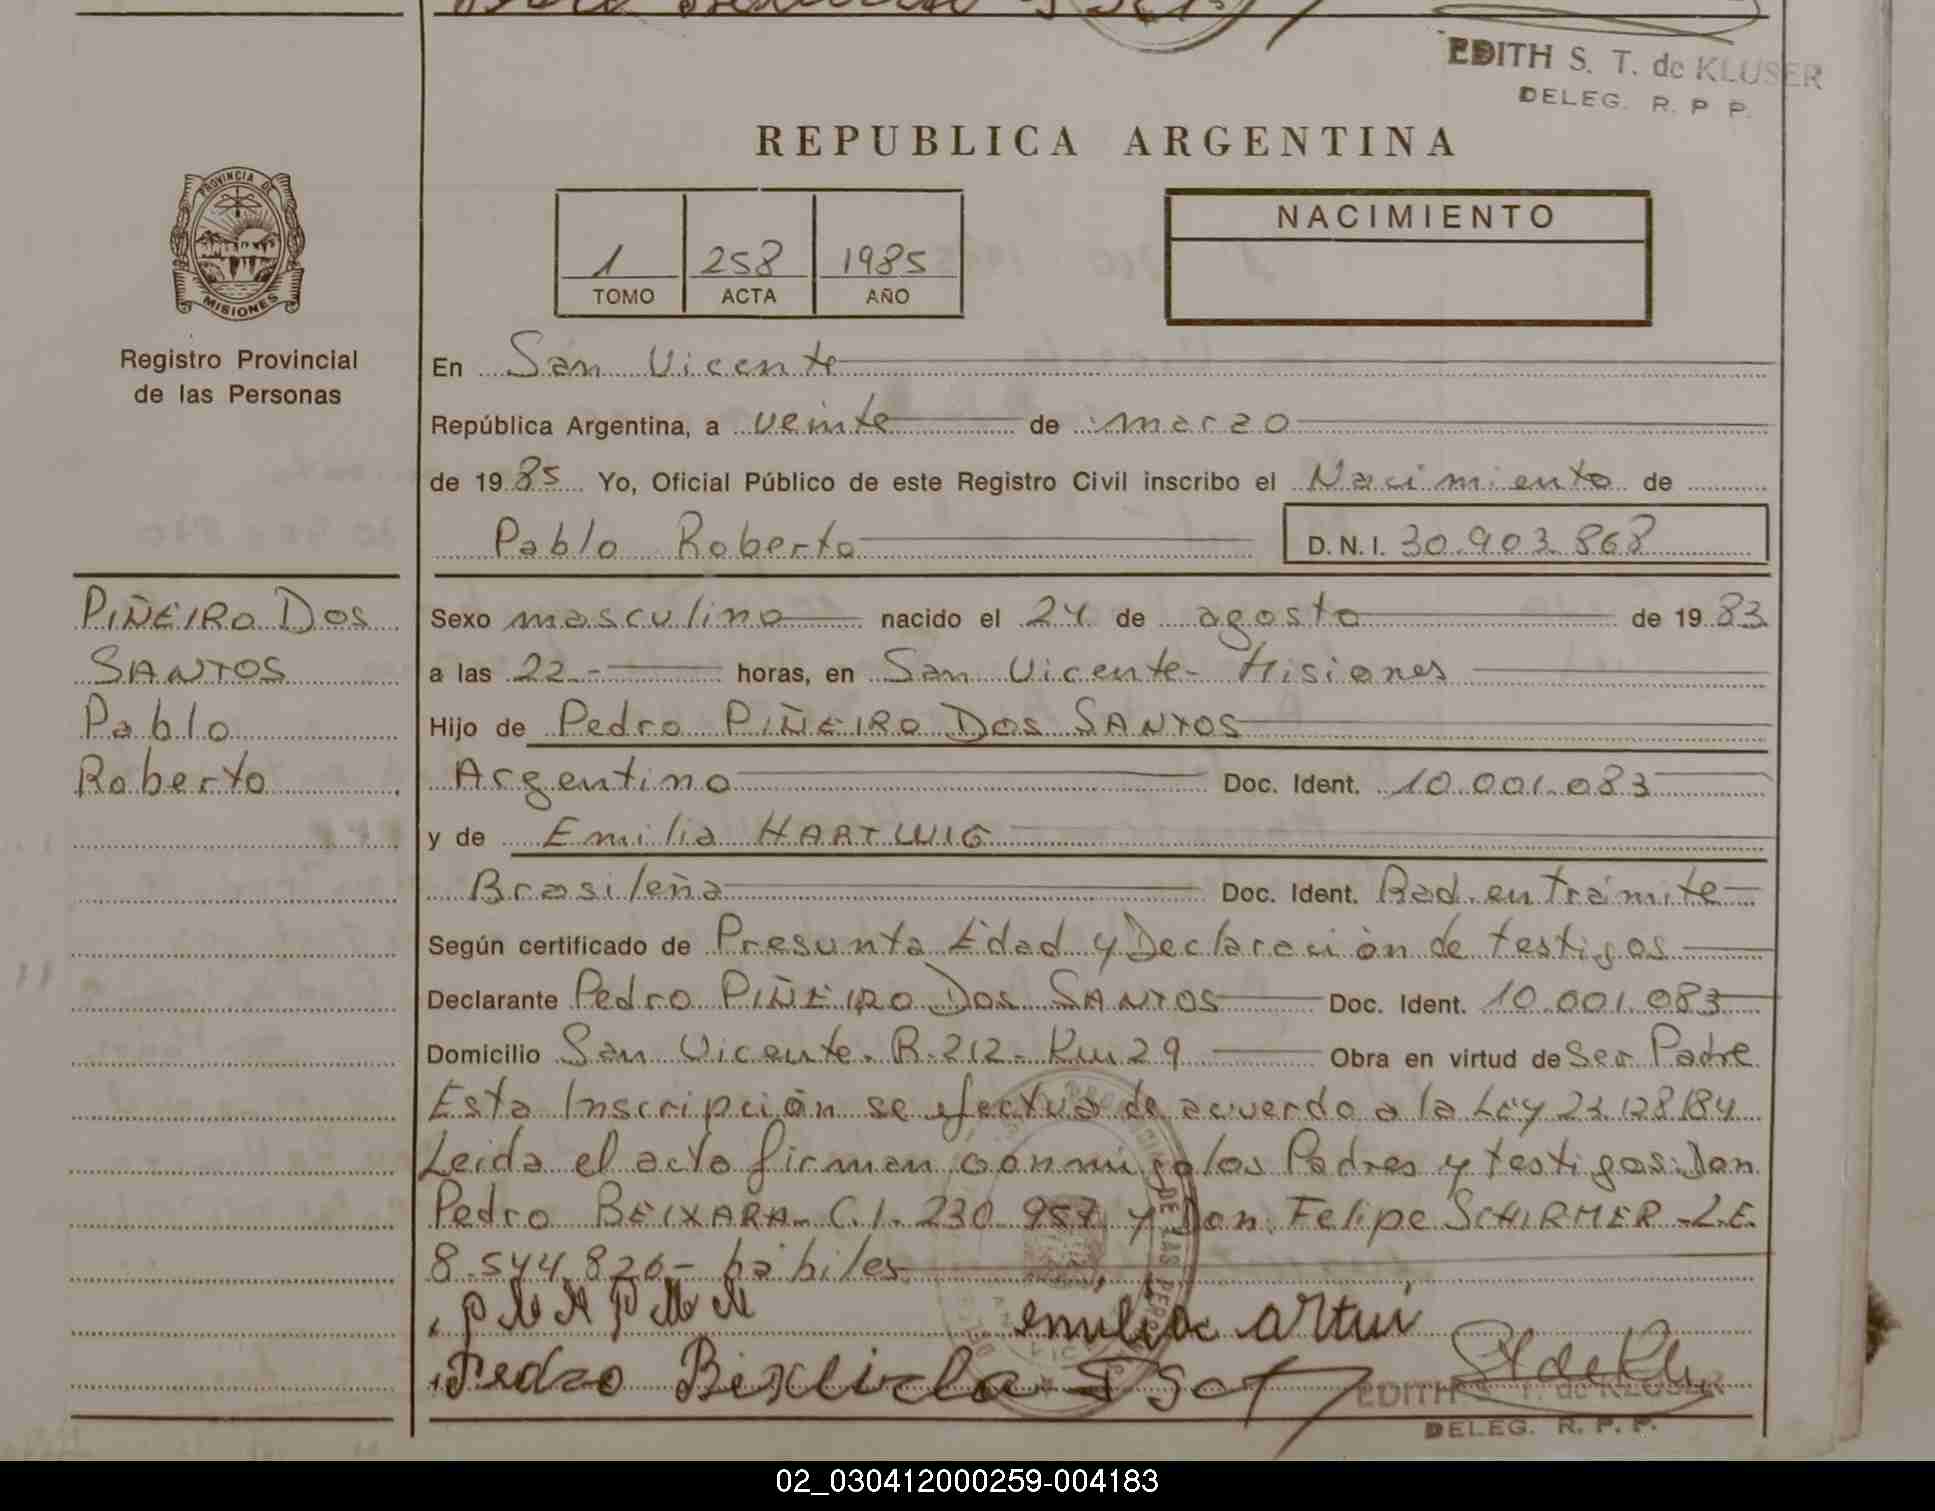 EDITH S. T. de KLUSER
DELEG. R. P. P.
REPUBLICA ARGENTINA
PROVINCIA DE
MISIONES
Registro Provincial
de las Personas
1 258 1985
TOMO ACTA AÑO
NACIMIENTO
En San Vicente
República Argentina, a veinte de marzo
de 1985 Yo, Oficial Público de este Registro Civil inscribo el Nacimiento de
Pablo Roberto D.N.I. 30.903.868
PIÑEIRO DOS
SANTOS
Pablo
Roberto
Sexo masculino nacido el 24 de agosto de 1983
a las 22.- horas, en San Vicente- Misiones
Hijo de Pedro PIÑEIRO DOS SANTOS
Argentino Doc. Ident. 10.001.083
y de Emilia HARTWIG
Brasileña Doc. Ident. Rad. en trámite
Según certificado de Presunta Edad y Declaración de testigos
Declarante Pedro PIÑEIRO DOS SANTOS Doc. Ident. 10.001.083
Domicilio San Vicente. R.212- Km 29 Obra en virtud de Ser Padre
Esta Inscripción se efectua de acuerdo a la Ley 23.128/84
Leida el acto firman conmigo los Padres y testigos: Don
Pedro BEIXARA- C.I. 230.957 y Don Felipe SCHIRMER -L.E.
8.544.826- hábiles
emilia artui
Pedro
EDITH S. T. de KLUSER
DELEG. R. P. P.
02_030412000259-004183